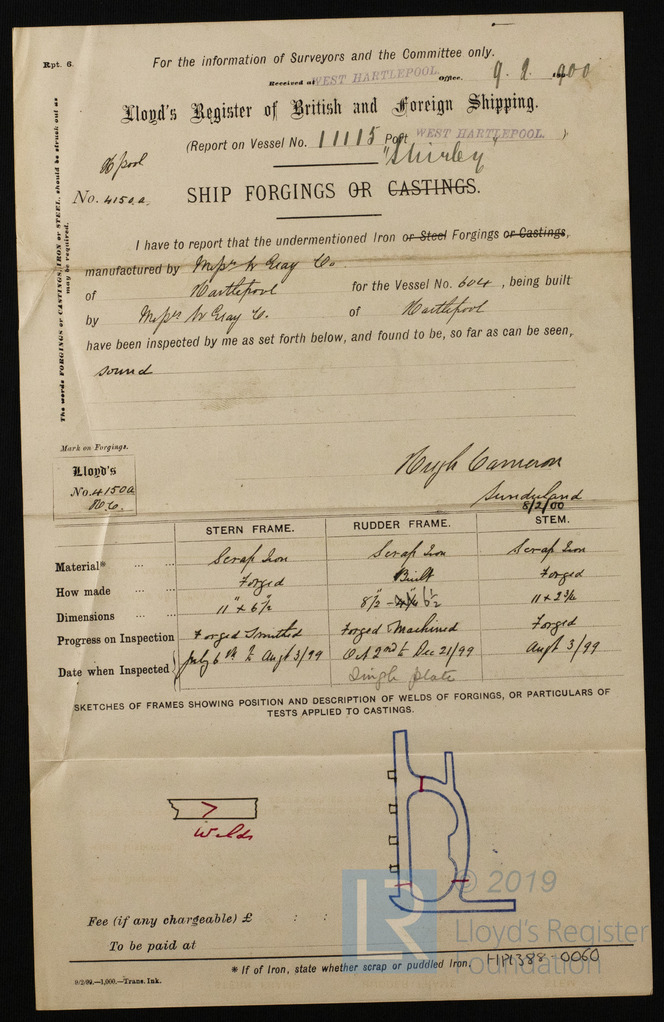 Rpt. 6.
For the information of Surveyors and the Committee only.
Received at WEST HARTLEPOOL. Office. 9. 2. 1900
Lloyd's Register of British and Foreign Shipping.
(Report on Vessel No. 11115 Port WEST HARTLEPOOL. )
"Shirley"
H'pool
No. 4150a
SHIP FORGINGS OR CASTINGS.
The words FORGINGS or CASTINGS, IRON or STEEL, should be struck out as may be required.
I have to report that the undermentioned Iron or Steel Forgings or Castings,
manufactured by Messrs W Gray Co.
of Hartlepool for the Vessel No. 604, being built
by Messrs W Gray C. of Hartlepool
have been inspected by me as set forth below, and found to be, so far as can be seen,
sound
Mark on Forgings.
Lloyd's
No. 4150a
H.C.
Hugh Cameron
Sunderland
8/2/00
STERN FRAME. RUDDER FRAME. STEM.
Material* ... ... Scrap Iron Scrap Iron Scrap Iron
How made ... ... Forged Built Forged
Dimensions ... 11" x 6½" 8½ - 6½ 11 x 2¾
Progress on Inspection Forged Smithed Forged Machined Forged
Date when Inspected July 6th to Augt 3/99 Oct 2nd to Dec 21/99 Augt 3/99
Single plate
SKETCHES OF FRAMES SHOWING POSITION AND DESCRIPTION OF WELDS OF FORGINGS, OR PARTICULARS OF
TESTS APPLIED TO CASTINGS.
Welds
Fee (if any chargeable) £ : :
To be paid at
* If of Iron, state whether scrap or puddled Iron.
HPL388-0060
9/2/99.—1,000.—Trans. Ink.
LR
© 2019
Lloyd's Register
Foundation